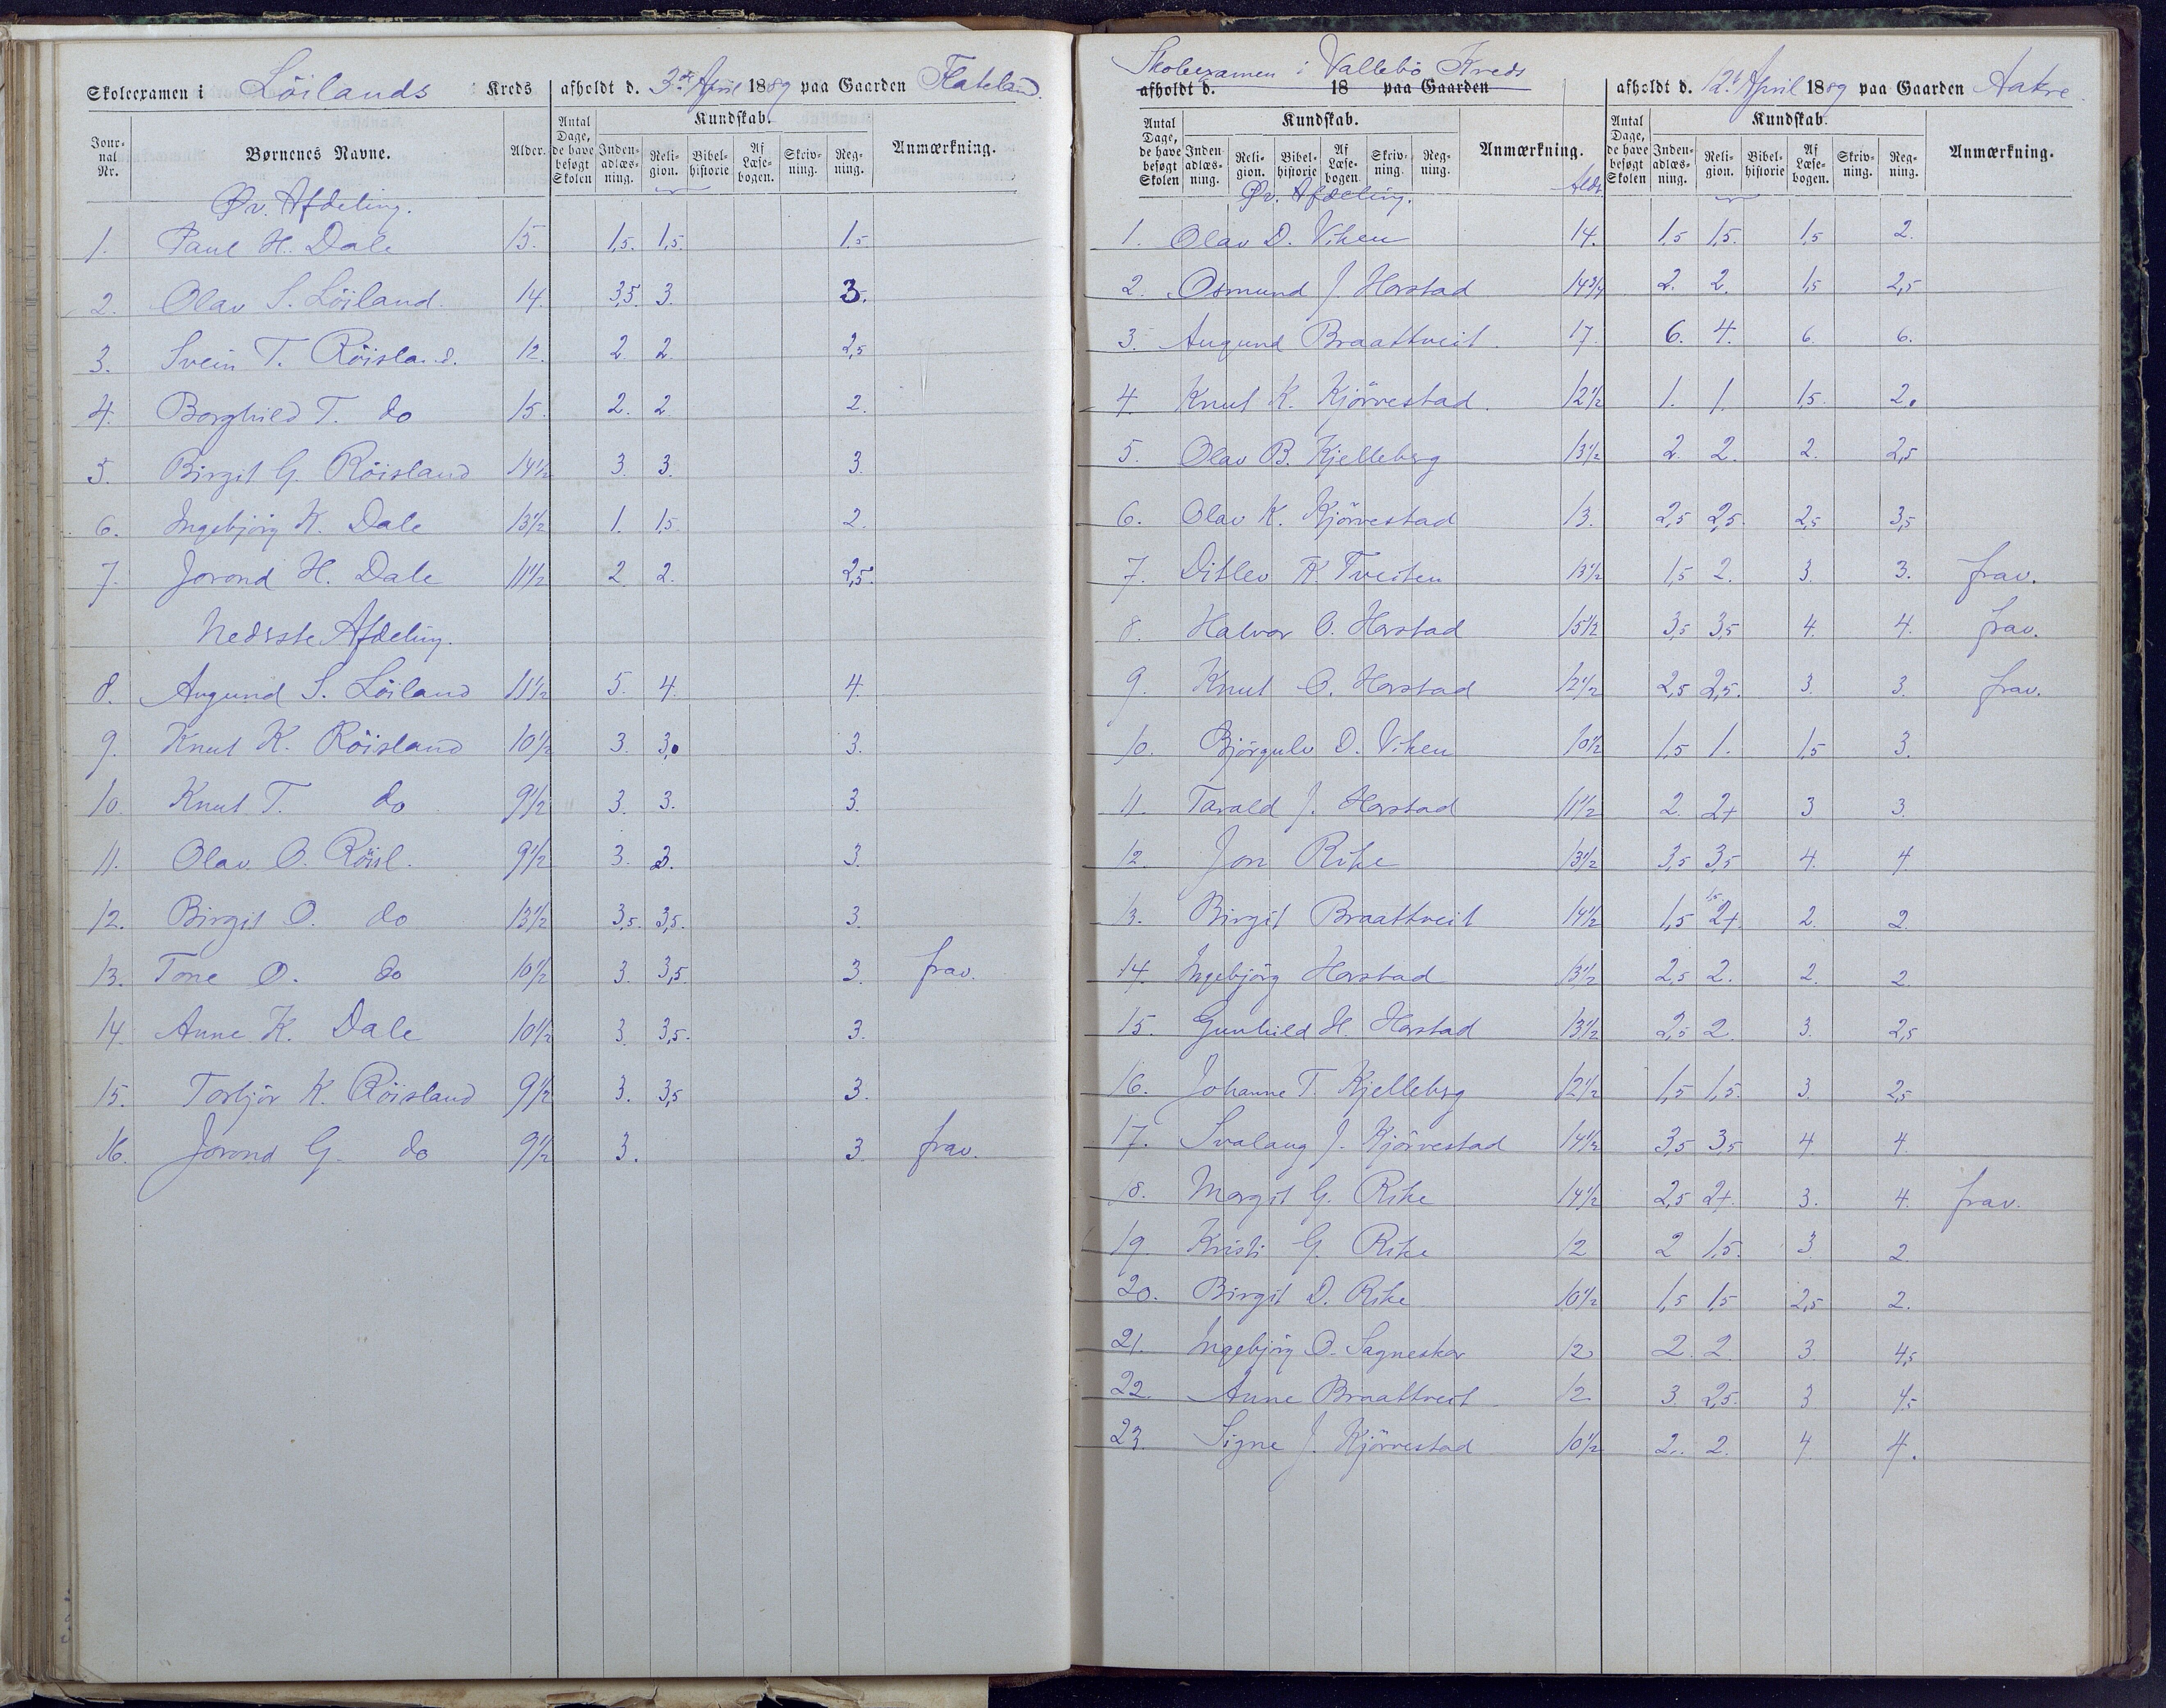 Skoleexamen i Löilands Kreds afholdt d. 3de April 1889 paa Gaarden Flateland.
Jour-nal Nr. Børnenes Navne. Alder. Antal Dage, de have besøgt Skolen Kundskab. Inden-adlæs-ning. Reli-gion. Bibel-historie Af Læse-bogen. Skriv-ning. Reg-ning. Anmærkning.
Øv. Afdeling.
1. Paul H. Dale 15. 1,5. 1,5. 1,5
2. Olav S. Löiland. 14. 3,5. 3. 3.
3. Svein T. Röisland. 12. 2 2. 2,5
4. Borghild T. do 15. 2. 2. 2.
5. Birgit G. Röisland 14½ 3. 3. 3.
6. Ingebjörg K. Dale 13½ 1. 1,5. 2.
7. Jorond H. Dale 11½ 2 2. 2,5.
Nedsste Afdeling.
8. Augund S. Löiland 11½ 5. 4. 4.
9. Knut K. Röisland 10½ 3. 3. 3.
10. Knut T. do 9½ 3. 3. 3.
11. Olav O. Röisl. 9½ 3. 3. 3.
12. Birgit O. do 13½ 3,5. 3,5. 3.
13. Tone O. do 10½ 3. 3,5. 3. frav.
14. Anne K. Dale 10½ 3. 3,5. 3.
15. Torbjör K. Röisland 9½ 3. 3,5 3.
16. Jorond G. do 9½ 3. 3. frav.
Skoleexamen i Vallebö Kreds
afholdt d. 18 paa Gaarden afholdt d. 12te April 1889 paa Gaarden Aakre.
Antal Dage, de have besøgt Skolen Kundskab. Inden-adlæs-ning. Reli-gion. Bibel-historie Af Læse-bogen. Skriv-ning. Reg-ning. Anmærkning. Antal Dage, de have besøgt Skolen Kundskab. Inden-adlæs-ning. Reli-gion. Bibel-historie Af Læse-bogen. Skriv-ning. Reg-ning. Anmærkning.
Øv. Afdeling. Aldr.
1. Olav D. Viken 14. 1,5 1,5. 1,5 2.
2. Osmund J. Harstad 14¾ 2. 2. 1,5 2,5
3. Augund Braattveit. 17. 6. 4. 6. 6.
4. Knut K. Kjörvestad. 12½ 1. 1. 1,5. 2.
5. Olav B. Kjelleberg 13½ 2. 2. 2. 2,5
6. Olav K. Kjörvestad 13. 2,5 2,5. 2,5 3,5
7. Ditlev K. Tveiten 13½ 1,5 2. 3. 3. frav.
8. Halvor O. Harstad 15½ 3,5 3,5 4. 4. frav.
9. Knut O. Harstad 12½ 2,5 2,5. 3. 3. frav.
10. Björgulv D. Viken 10½ 1,5 1. 1,5 3.
11. Tarald J. Harstad 11½ 2. 2+ 3 3.
12. Jon Rike 13½ 3,5 3,5 4. 4.
13. Birgit Braattveit 14½ 1,5 1,5 2+. 2. 2.
14. Ingebjörg Harstad 13½ 2,5 2. 2. 2.
15. Gunhild H. Harstad 13½ 2,5 2. 3. 2,5
16. Johanne T. Kjelleberg 12½ 1,5 1,5. 3. 2,5
17. Svalaug J. Kjörvestad 14½ 3,5 3,5 4. 4.
18. Margit G. Rike 14½ 2,5 2+. 3. 4. frav.
19. Kristi G. Rike 12 2 1,5. 3. 2.
20. Birgit D. Rike 10½ 1,5 1,5 2,5 2.
21. Ingebjörg O. Sagneskar 12 2. 2. 3. 4,5
22. Anne Braattveit 12. 3. 2,5. 3. 4,5
23 Signe J. Kjörvestad 10½ 2. 2. 4 4.